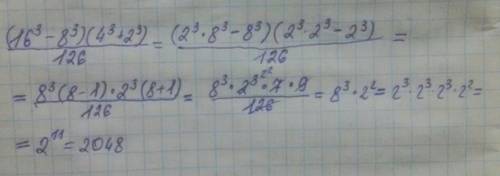 (16³ - 8³)(4³ + 2³)/126 = (2³ · 8³ - 8³)(2³ · 2³ - 2³)/126 =
= 8³(8 - 1) · 2³(8 + 1)/126 = 8³ · 2³ 2² · 7 · 9/126 = 8³ · 2² = 2³ · 2³ · 2³ · 2² =
= 2¹¹ = 2048